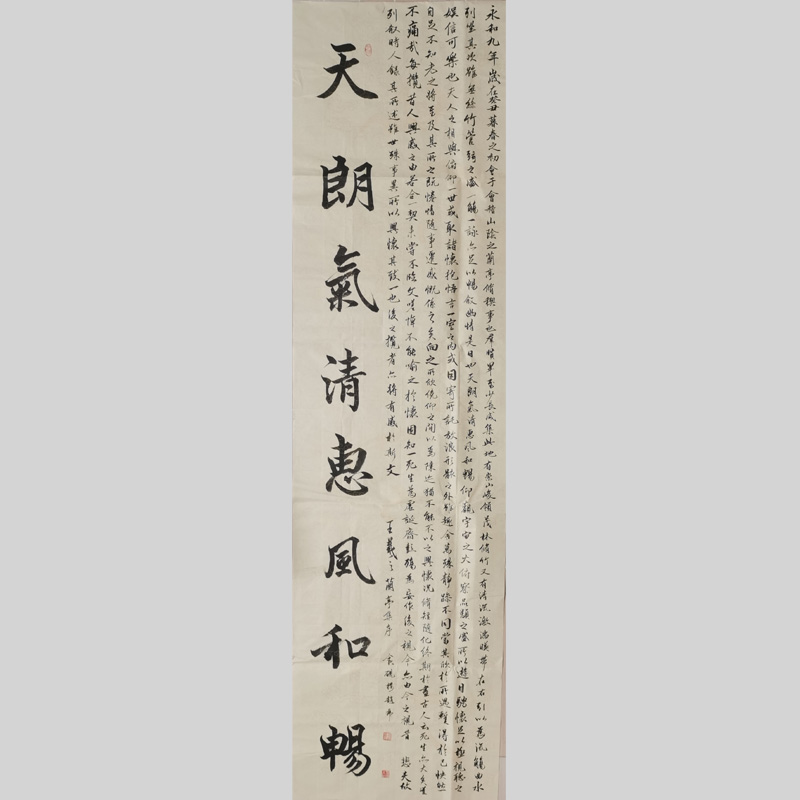 永和九年歲在癸丑暮春之初會于會稽山陰之蘭亭脩禊事也羣賢畢至少長咸集此地有崇山峻領茂林脩竹又有清流激湍暎帶左右引以為流觴曲水
列坐其次雖無絲竹管弦之盛一觴一詠亦足以暢敘幽情是日也天朗氣清惠風和暢仰觀宇宙之大俯察品類之盛所以遊目騁懷足以極視聽之
娛信可樂也夫人之相與俯仰一世或取諸懷抱悟言一室之內或因寄所託放浪形骸之外雖趣舍萬殊靜躁不同當其欣於所遇蹔得於己快然
自足不知老之將至及其所之既惓情隨事遷感慨係之矣向之所欣俛仰之間以為陳迹猶不能不以之興懷況脩短隨化終期於盡古人云死生亦大矣豈
不痛哉每攬昔人興感之由若合一契未嘗不臨文嗟悼不能喻之於懷固知一死生為虛誕齊彭殤為妄作後之視今亦由今之視昔 悲夫故
列敘時人錄其所述雖世殊事異所以興懷其致一也後之攬者亦將有感於斯文 王羲之蘭亭集序
天朗氣清惠風和暢